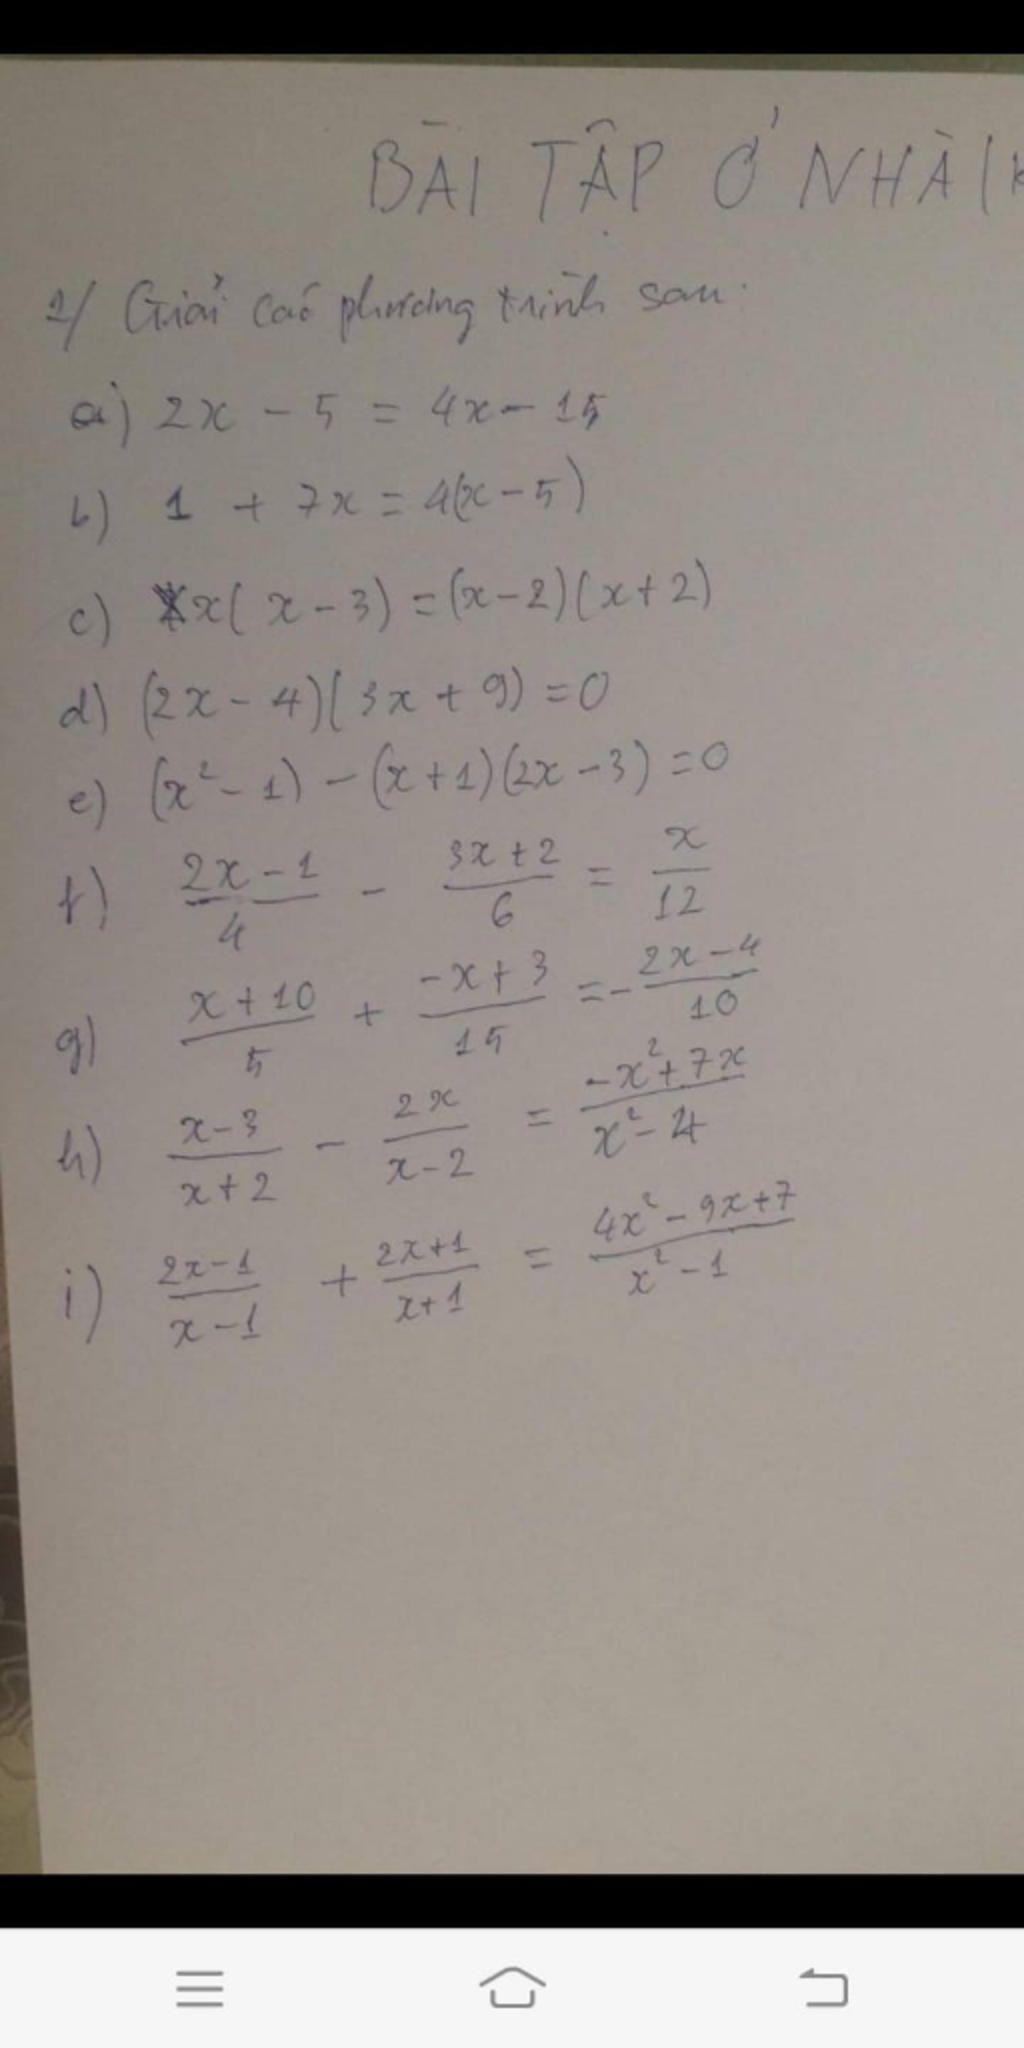 BÀI TẬP Ở NHÀ (
1/ Giải các phương trình sau:
a) 2x - 5 = 4x - 15
b) 1 + 7x = 4(x - 5)
c) x(x - 3) = (x - 2)(x + 2)
d) (2x - 4)(3x + 9) = 0
e) (x² - 1) - (x + 1)(2x - 3) = 0
f) (2x - 1)/4 - (3x + 2)/6 = x/12
g) (x + 10)/5 + (-x + 3)/15 = -(2x - 4)/10
h) (x - 3)/(x + 2) - 2x/(x - 2) = (-x² + 7x)/(x² - 4)
i) (2x - 1)/(x - 1) + (2x + 1)/(x + 1) = (4x² - 9x + 7)/(x² - 1)